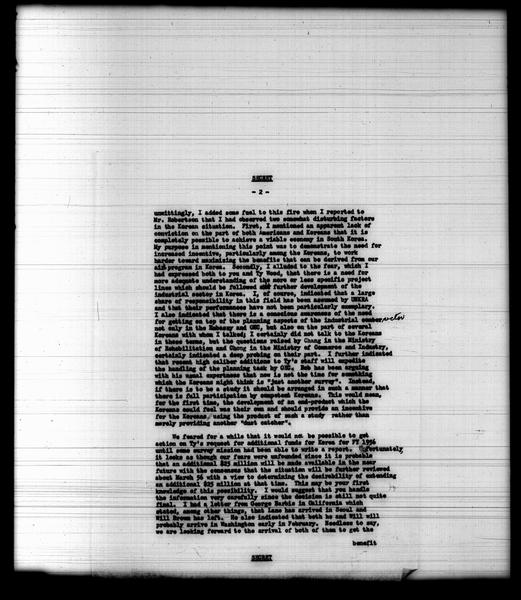 SECRET
- 2 -
unwittingly, I added some fuel to this fire when I reported to
Mr. Robertson that I had observed two somewhat disturbing factors
in the Korean situation. First, I mentioned an apparent lack of
conviction on the part of both Americans and Koreans that it is
completely possible to achieve a viable economy in South Korea.
My purpose in mentioning this point was to demonstrate the need for
increased incentive, particularly among the Koreans, to work
harder toward maximizing the benefits that can be derived from our
aid program in Korea. Secondly, I alluded to the fear, which I
had expressed both to you and Ty Wood, that there is a need for
more adequate understanding of the more or less specific project
lines which should be followed and further development of the
industrial sector in Korea. I, of course, indicated that a large
share of responsibility in this field has been assumed by UNKRA
and that their performances have not been particularly exemplary.
I also indicated that there is a conscious awareness of the need
for getting on top of the planning aspects of the industrial sector
not only in the Embassy and OEC, but also on the part of several
Koreans with whom I talked; I certainly did not talk to the Koreans
in these terms, but the questions raised by Chang in the Ministry
of Rehabilitation and Chong in the Ministry of Commerce and Industry,
certainly indicated a deep probing on their part. I further indicated
that recent high caliber additions to Ty's staff will expedite
the handling of the planning task by OEC. Bob has been arguing
with his usual experience that now is not the time for something
which the Koreans might think is "just another survey". Instead
if there is to be a study it should be arranged in such a manner that
there is full participation by competent Koreans. This would mean,
for the first time, the development of an end-product which the
Koreans could feel was their own and should provide an incentive
for the Koreans using the product of such a study rather than
merely providing another "dust catcher".
We feared for a while that it would not be possible to get
action on Ty's request for additional funds for Korea for FY 1956
until some survey mission had been able to write a report. Fortunately,
it looks as though our fears were unfounded since it is probable
that an additional $25 million will be made available in the near
future with the covenant that the situation will be further reviewed
about March 56 with a view to determining the desirability of extending
an additional $25 million at that time. This may be your first
knowledge of this possibility. I would suggest that you handle
the information very carefully since the decision is still not quite
final. I had a letter from George Barbis in California which
states, among other things, that Lane has arrived in Seoul and
Will Brown has left. He also indicated that both he and Will will
probably arrive in Washington early in February. Needless to say,
we are looking forward to the arrival of both of them to get the
benefit
SECRET